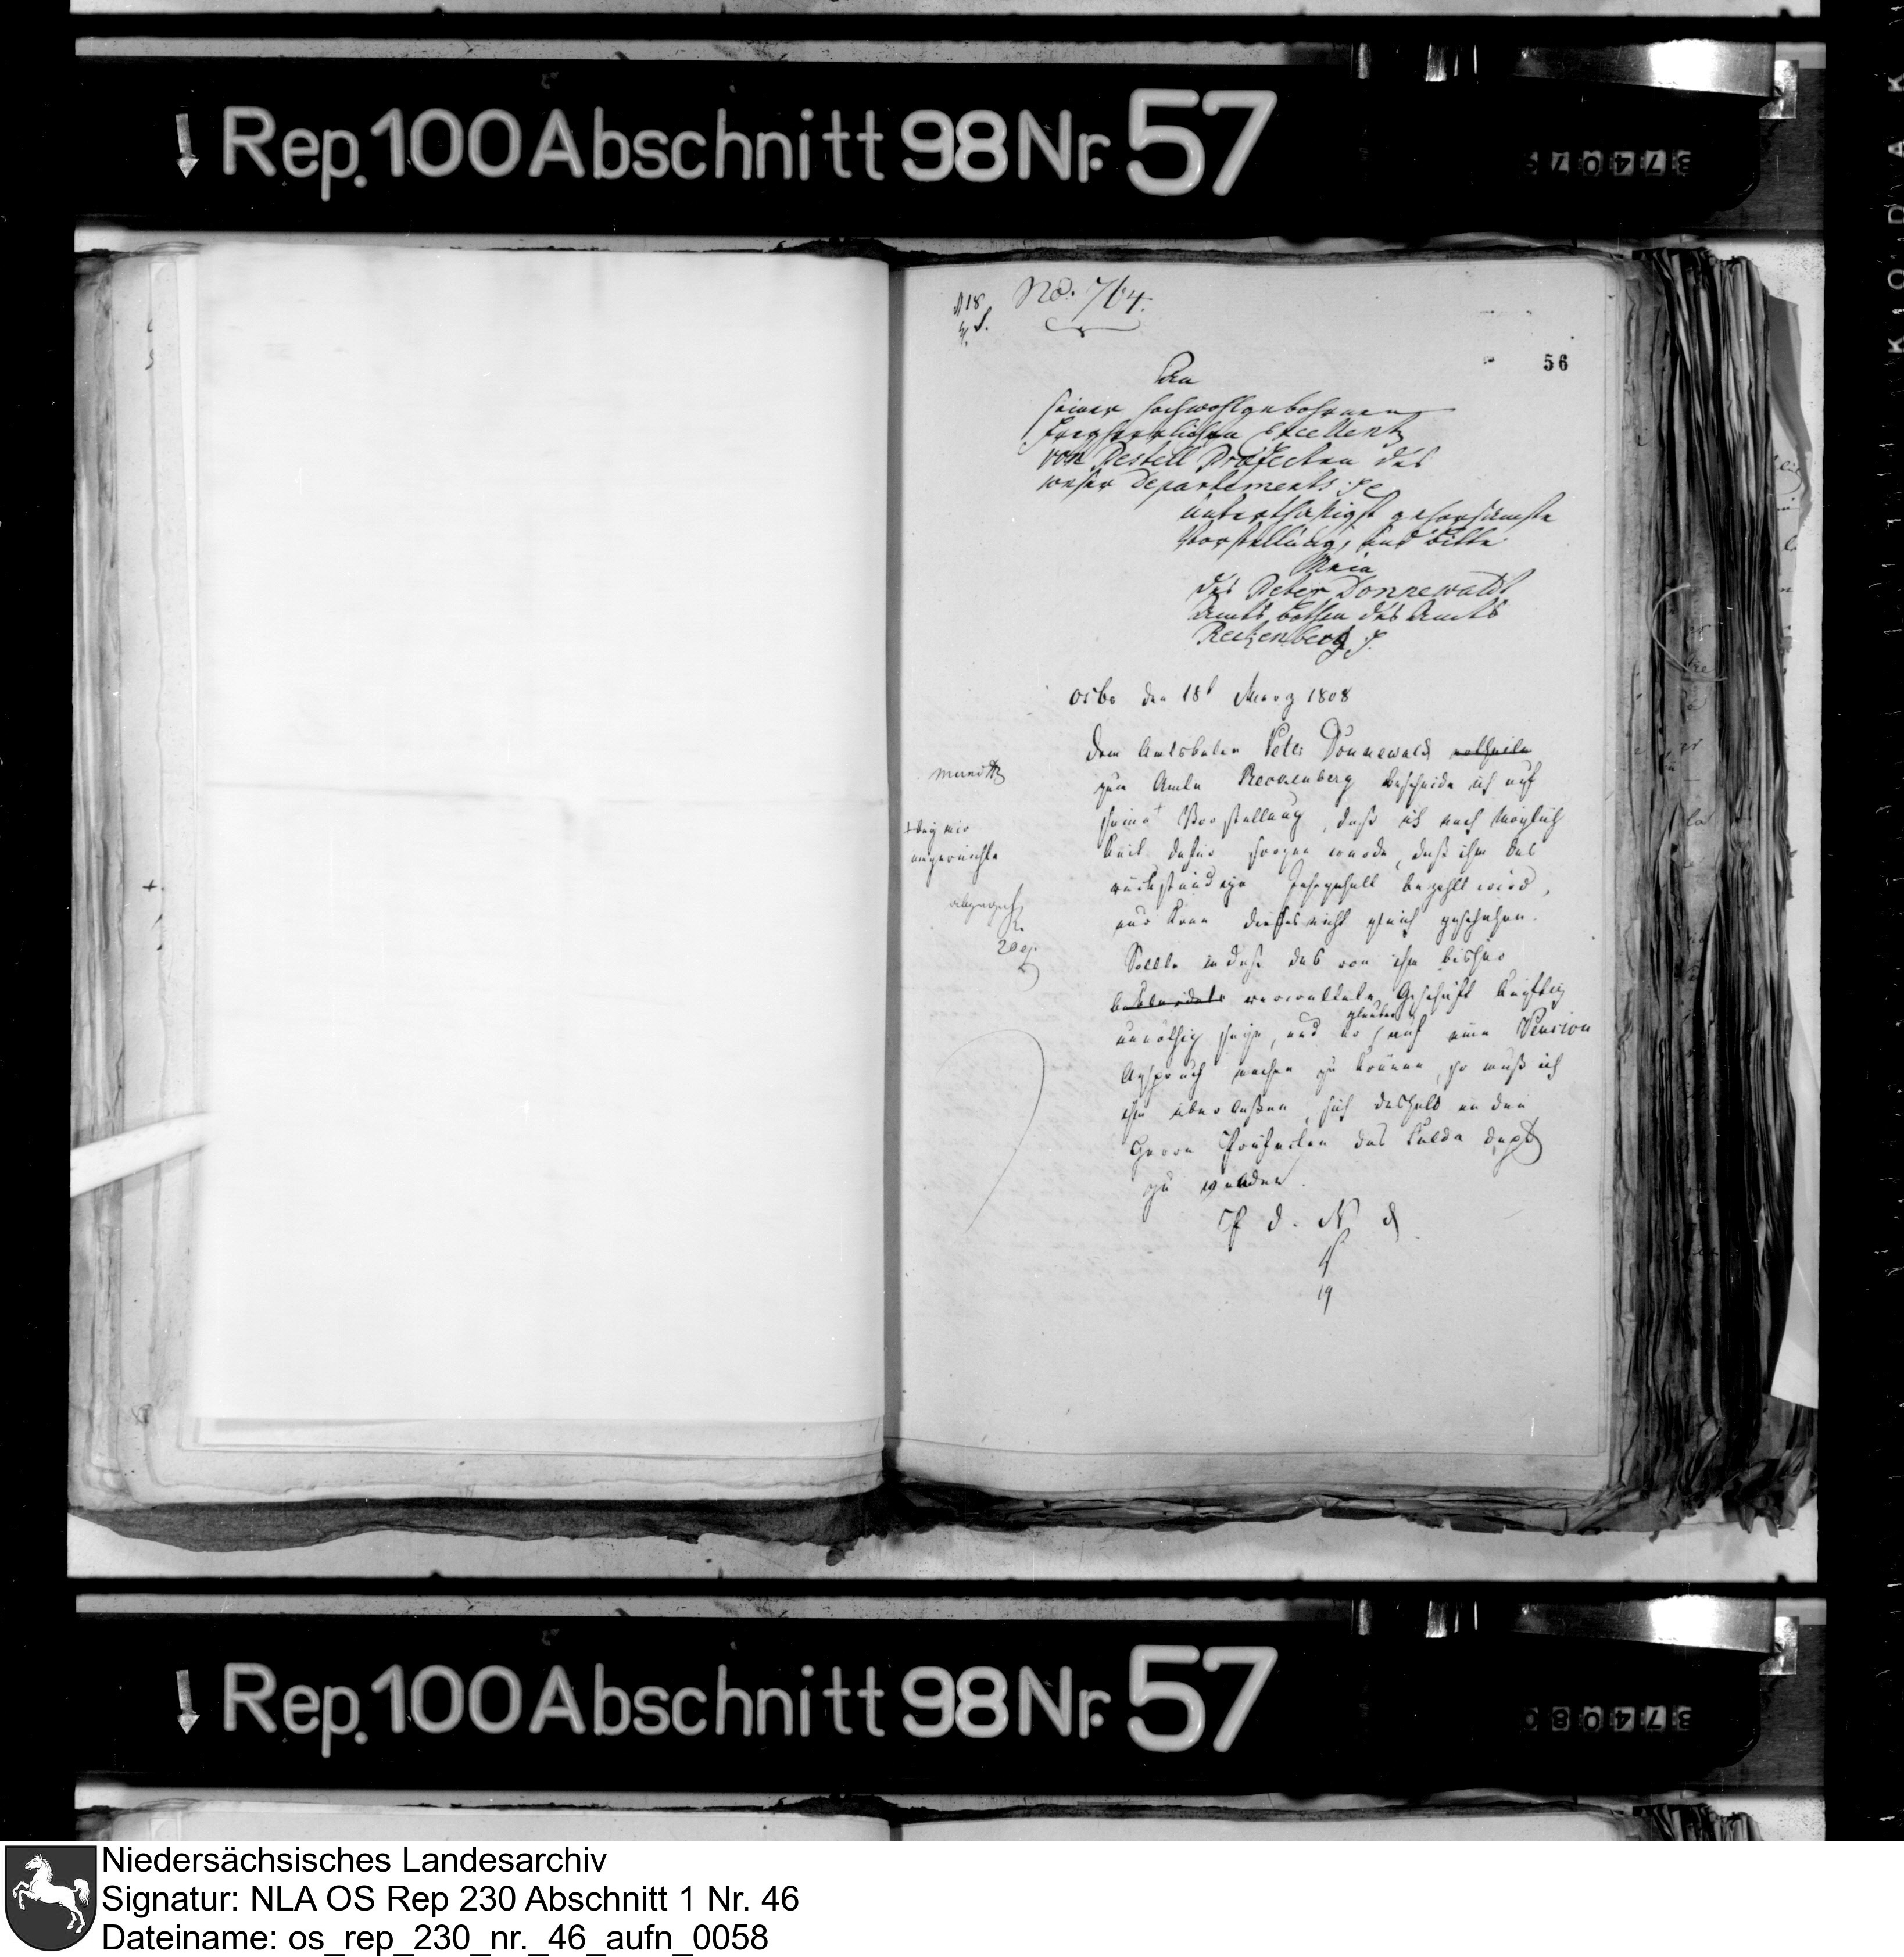 Rep. 100 Abschnitt 98 Nr. 57
No. 764.
56
An
seiner hochwohlgebohrnen
Freyherrlichen Excellentz
von Pestell Präfecten des
weser Departements pp
unterthänigst gehorsamste
Vorstellung, und bitte
Mein
des Peter Donnewaldt
Amts bothen des Amts
Reckenberg p.
Osbr den 18t Maerz 1808
Dem Amtsboten Peter Donnewald
zum Amte Reckenberg bescheide ich auf
seine + Vorstellung, daß ich nach Möglich
keit dafür sorgen werde, daß ihm das
rückständige Jahrgehalt bezahlt wird,
nur kann dieses nicht gleich geschehen.
Sollte indeß das von ihm bisher
verwaltete Geschäft künftig
unnöthig seyn, und er glauben auf eine Pension
Anspruch machen zu können, so muß ich
ihm überlaßen, sich deshalb an den
Herrn Präfecten des Fulda Dept
zu wenden.
P d. W d
19
mundt
+ bey mir
eingereichte
abgegeb
20 ej.
Rep. 100 Abschnitt 98 Nr. 57
Niedersächsisches Landesarchiv
Signatur: NLA OS Rep 230 Abschnitt 1 Nr. 46
Dateiname: os_rep_230_nr._46_aufn_0058